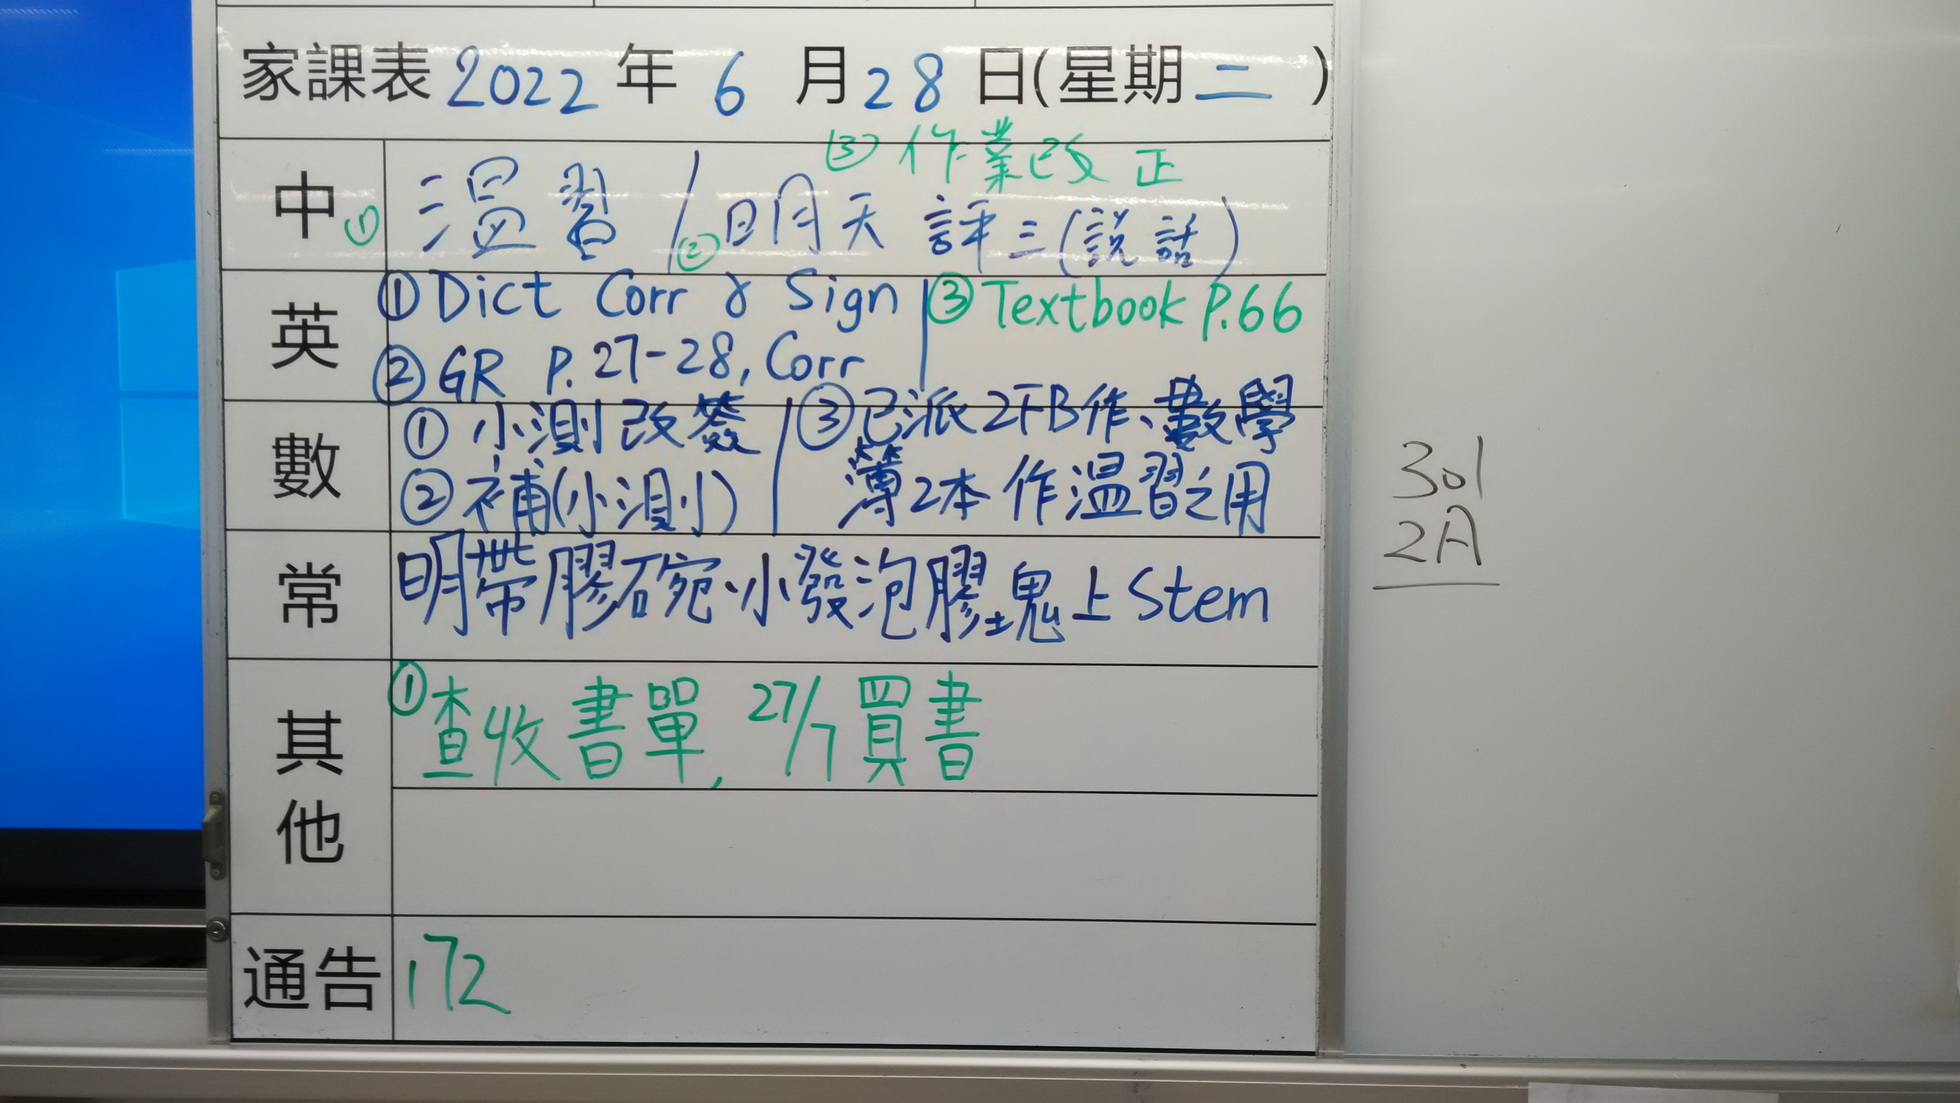 家課表 2022 年 6 月 28 日(星期二)
③ 作業改正
中 ① 温習 / ② 明天評三(說話)
英 ① Dict Corr & Sign ③ Textbook P.66
② GR P. 27-28, Corr
數 ① 小測改簽 ③ 已派2FB作、數學
② 補(小測) 簿2本作温習之用
常 明帶膠碗、小發泡膠塊上Stem
其他 ① 查收書單, 27/7買書
通告 172
301
2A